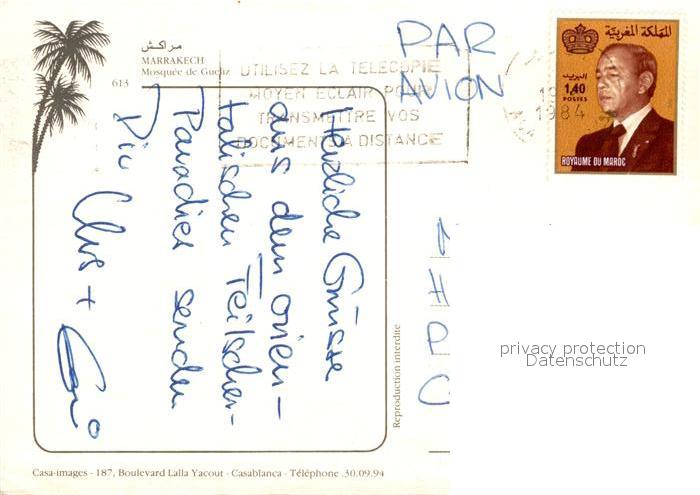 مراكش
MARRAKECH
Mosquée de Gueliz
613
UTILISEZ LA TELECOPIE
MOYEN ECLAIR POUR
TRANSMETTRE VOS
DOCUMENTS A DISTANCE
PAR
AVION
1984
المملكة المغربية
البريد
1,40
POSTES
ROYAUME DU MAROC
Herzliche Grüsse
aus dem orien-
talischen Teitscher-
Paradies senden
Dir Chris +
Reproduction interdite
privacy protection
Datenschutz
Casa-images - 187, Boulevard Lalla Yacout - Casablanca - Téléphone .30.09.94